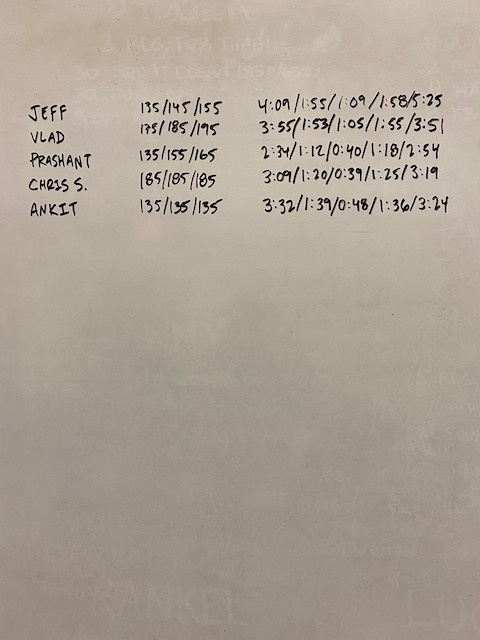 JEFF 135/145/155 4:09/1:55/1:09/1:58/5:25
VLAD 175/185/195 3:55/1:53/1:05/1:55/3:51
PRASHANT 135/155/165 2:34/1:12/0:40/1:18/2:54
CHRIS S. 185/185/185 3:09/1:20/0:39/1:25/3:19
ANKIT 135/135/135 3:32/1:39/0:48/1:36/3:24